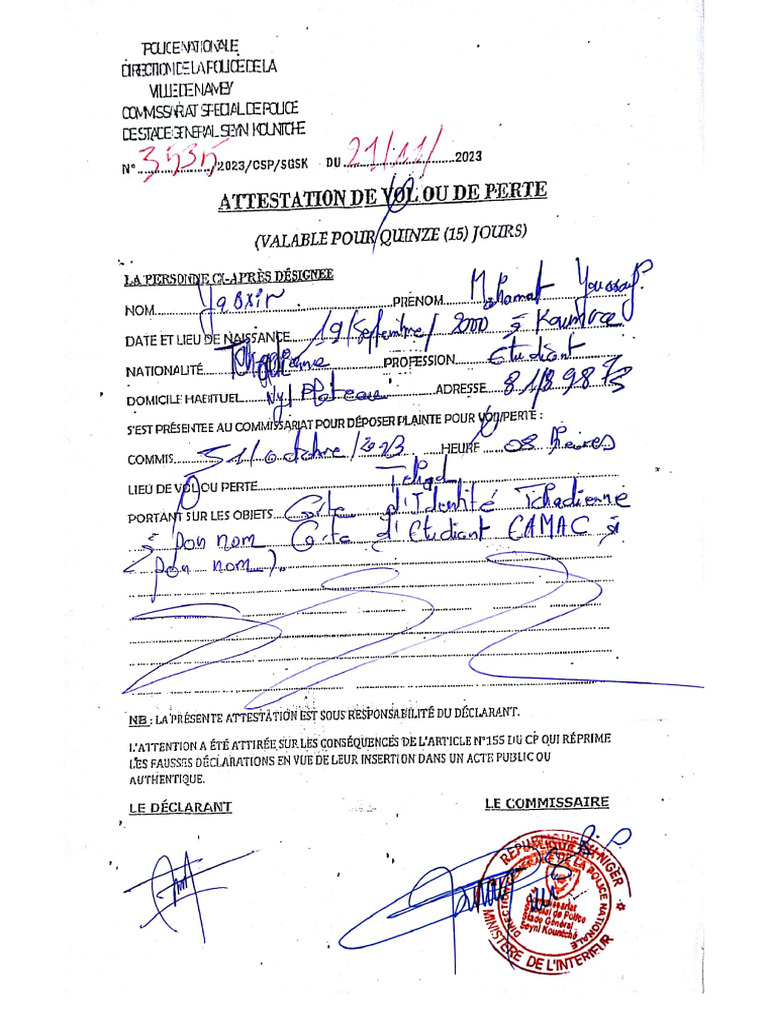 POLICE NATIONALE
DIRECTION DE LA POLICE DE LA
VILLE DE NIAMEY
COMMISSARIAT SPECIAL DE POLICE
DE STADE GENERAL SEYNI KOUNTCHE
N° 3535 /2023/CSP/SGSK DU 21/11/ 2023
ATTESTATION DE VOL OU DE PERTE
(VALABLE POUR QUINZE (15) JOURS)
LA PERSONNE CI-APRÈS DÉSIGNEE
NOM Yassir PRÉNOM Mahamat Youssouf
DATE ET LIEU DE NAISSANCE 19/Septembre/2000 à
NATIONALITÉ Tchadienne PROFESSION Etudiant
DOMICILE HABITUEL Ny/Plateau ADRESSE
S'EST PRÉSENTEE AU COMMISSARIAT POUR DÉPOSER PLAINTE POUR VOL/PERTE :
COMMIS 31/octobre/2023 HEURE 08 heures
LIEU DE VOL OU PERTE Tchad
PORTANT SUR LES OBJETS Carte d'Identité Tchadienne
à son nom Carte d'Etudiant CAMAC à
son nom).
NB : LA PRÉSENTE ATTESTATION EST SOUS RESPONSABILITÉ DU DÉCLARANT.
L'ATTENTION A ÉTÉ ATTIRÉE SUR LES CONSÉQUENCES DE L'ARTICLE N°155 DU CP QUI RÉPRIME
LES FAUSSES DÉCLARATIONS EN VUE DE LEUR INSERTION DANS UN ACTE PUBLIC OU
AUTHENTIQUE.
LE DÉCLARANT LE COMMISSAIRE
REPUBLIQUE DU NIGER
DIRECTION GENERALE DE LA POLICE NATIONALE
Commissariat
Spécial de Police
Stade Général
Seyni Kountché
MINISTÈRE DE L'INTERIEUR